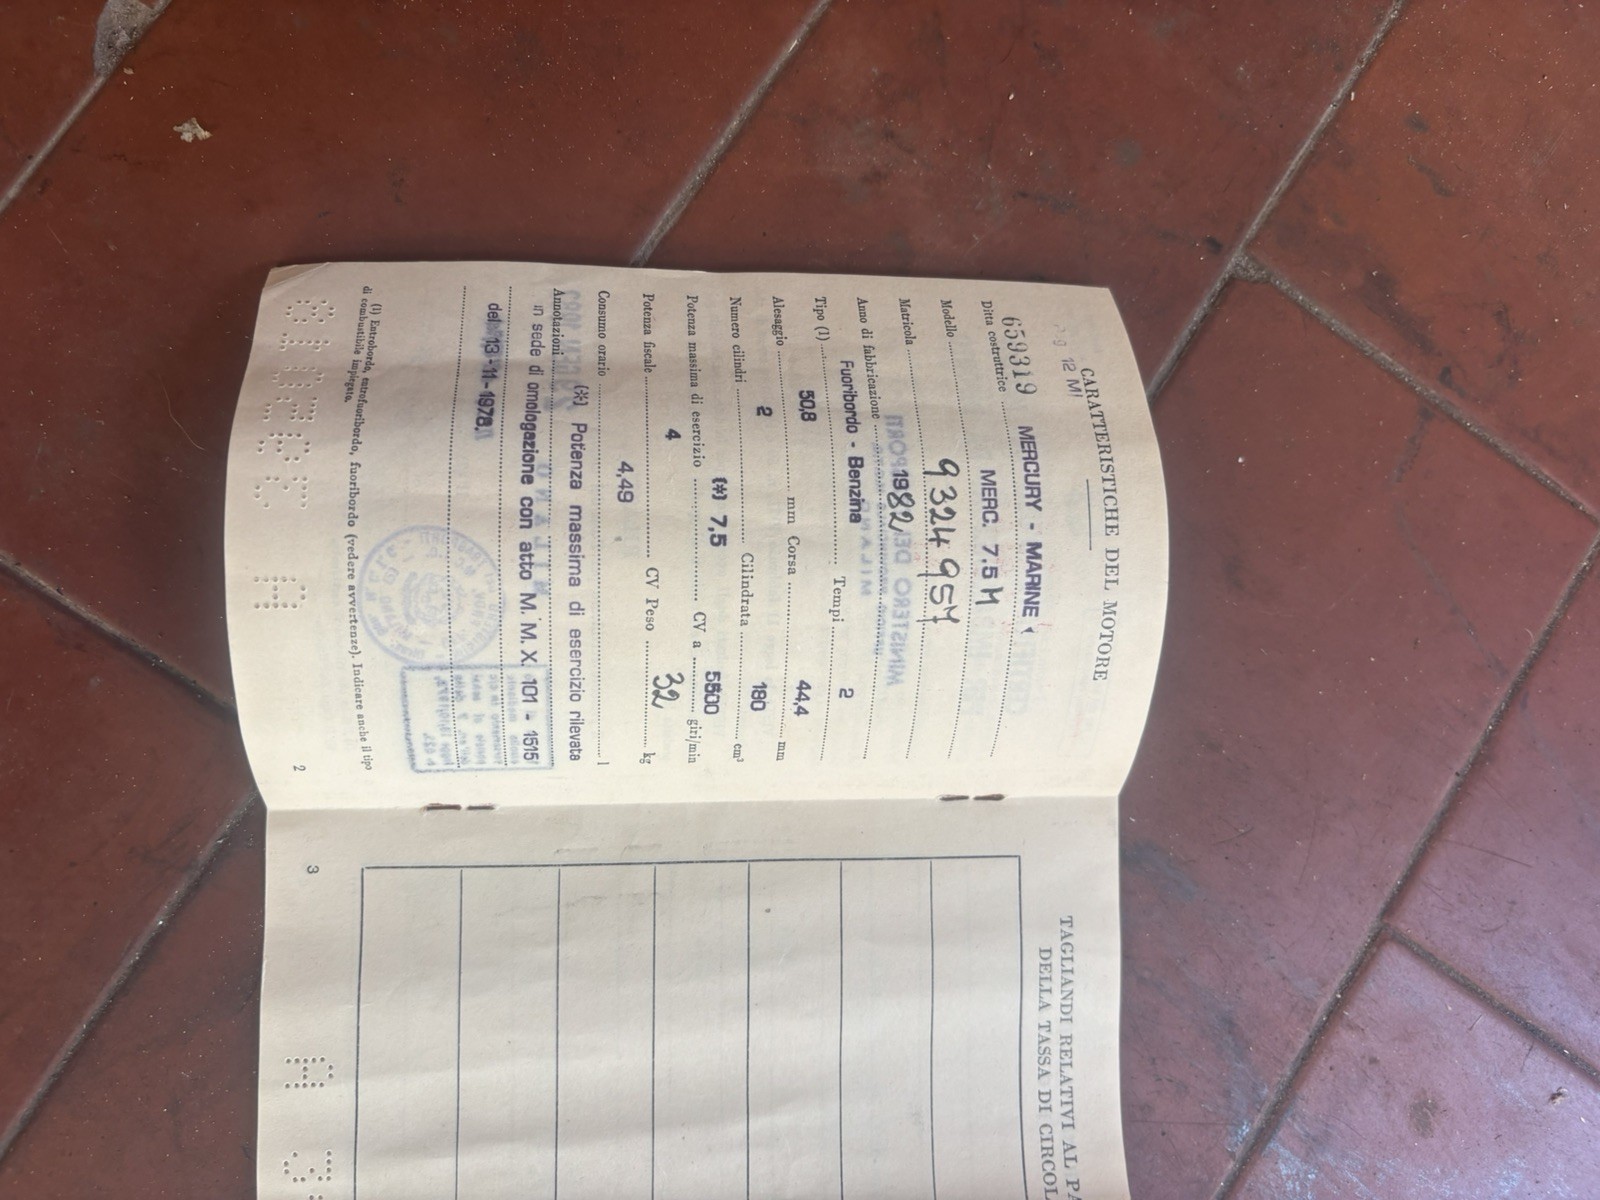 CARATTERISTICHE DEL MOTORE
659319
Ditta costruttrice MERCURY - MARINE
Modello MERC. 7.5 M
Matricola 9324957
Anno di fabbricazione 1982
Tipo (1) Fuoribordo - Benzina Tempi 2
Alesaggio 50,8 mm Corsa 44,4 mm
Numero cilindri 2 Cilindrata 180 cm³
Potenza massima di esercizio (*) 7,5 CV a 5500 giri/min
Potenza fiscale 4 CV Peso 32 kg
Consumo orario 4,49 l
Annotazioni (*) Potenza massima di esercizio rilevata
in sede di omologazione con atto M. M. X. 101 - 1515
del 13-11-1978.
(1) Entrobordo, entrofuoribordo, fuoribordo (vedere avvertenze). Indicare anche il tipo
di combustibile impiegato.
2
TAGLIANDI RELATIVI AL PA
DELLA TASSA DI CIRCOL
3